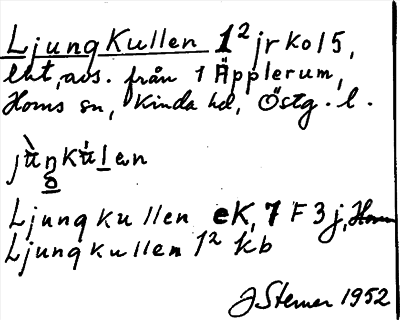 Ljungkullen 1² jrko15,
lht, avs. från 1 Äpplerum,
Horns sn, Kinda hd, Östg. l.
jùŋkúlen
Ljungkullen ek, 7 F 3 j, Horn
Ljungkullen 1² kb
J Sterner 1952